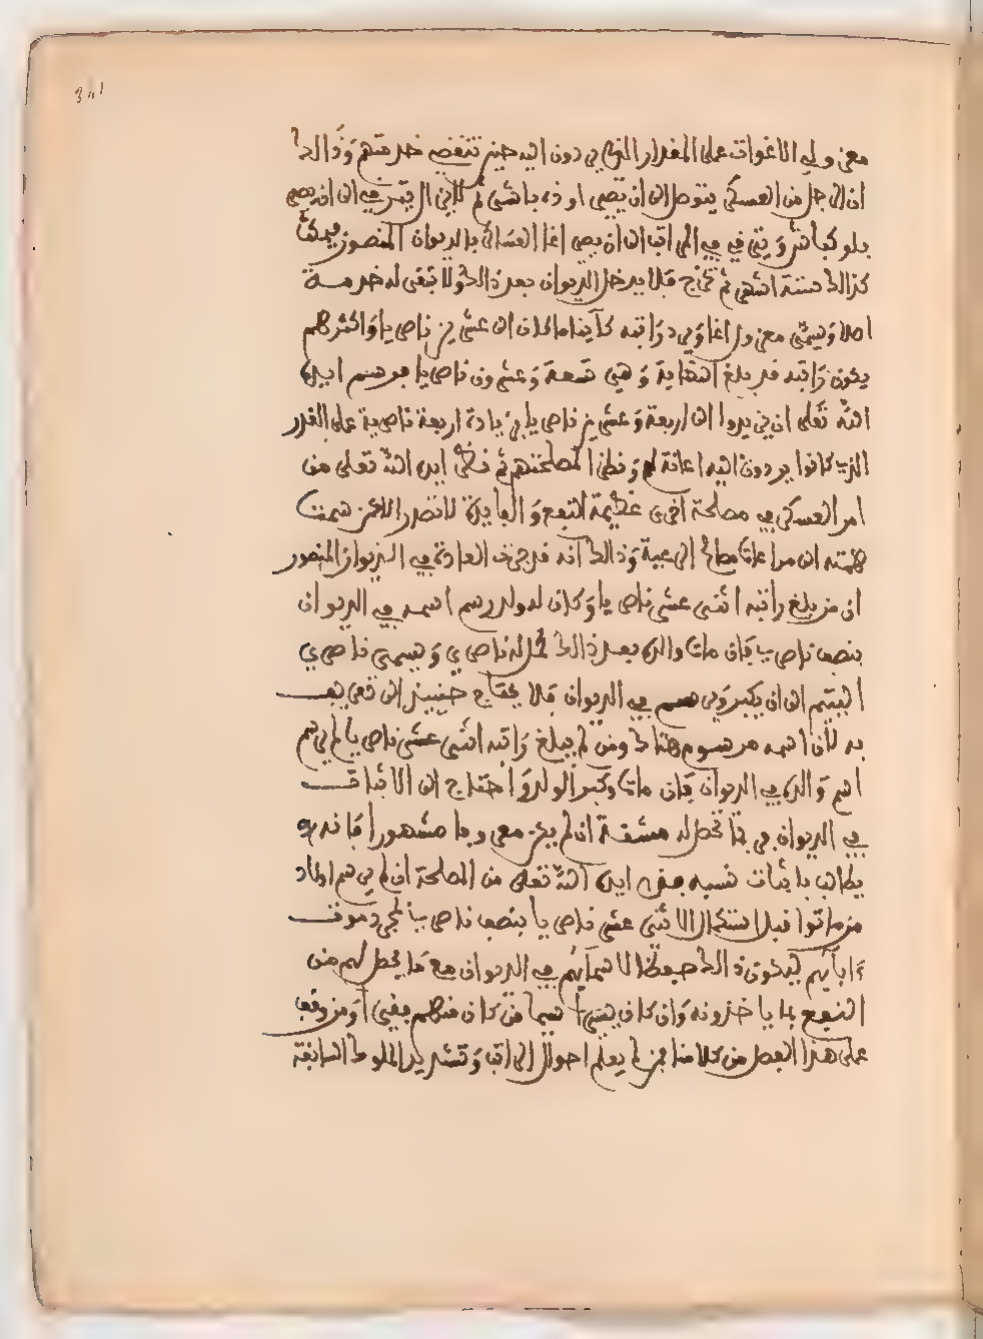 341
معزولي الاغوات على المقدار الذي يردون اليه حين تنقضي خدمتهم وذالك
ان الرجل من العسكر يتوصل الى ان يصير اوده باشي ثم الى ان يصير
بلوكباشي و في المراتب الى ان يصير اغا العسكر بالديوان المنصور فيمكث
كذالك ستة اشهر ثم يخرج فلا يدخل الديوان بعد ذالك ولا تبقى له خدمة
اصلا ويسمى معزول اغا ويرد راتبه كاينا ما كان الى عشرين ناصريا واكثرهم
يكون راتبه قد بلغ النهاية وهي تسعة وعشرون ناصريا فرسم ايده
الله تعلى ان يزيدوا الى اربعة وعشرين ناصريا بزيادة اربعة ناصرية على القدر
الذي كانوا يردون اليه اعانة لهم و لمصلحتهم ثم نظر ايده الله تعلى من
امر العسكر في مصلحة اخرى عظيمة النفع والفايدة لا تصدر الا عمن سمت
همته الى مراعات مصالح الرعية وذالك انه قد جرت العادة في الديوان المنصور
ان من بلغ راتبه اثنى عشر ناصريا وكان له ولد رسم اسمه في الديوان
بنصف ناصري فان مات والده بعد ذالك كمل له ناصري ويسمى ناصري
اليتيم الى ان يكبر و في الديوان فلا يحتاج حينيذ الى تعريف
به لان اسمه مرسوم هناك ومن لم يبلغ راتبه اثنى عشر ناصريا لم يرسم
اسم والده في الديوان فان مات وكبر الولد واحتاج الى الاثبات
في الديوان فربما تحصل له مشقة ان لم يكن معروفا مشهورا فانه
يطالب باثبات نسبه فراى ايده الله تعلى من المصلحة ان يرسم اولاد
من ماتوا قبل استكمال الاثنى عشر ناصريا بنصف ناصري بالمجرد موت
ءابايهم ليكون ذالك حفظا لاسمايهم في الديوان مع ما يحصل لهم من
النفع بما ياخذونه وان كان يسيرا سيما من كان منهم فقيرا ومن وقف
على هذا الفصل من كلامنا ممن لم يعلم احوال الراتب وتشديد الملوك السابقة